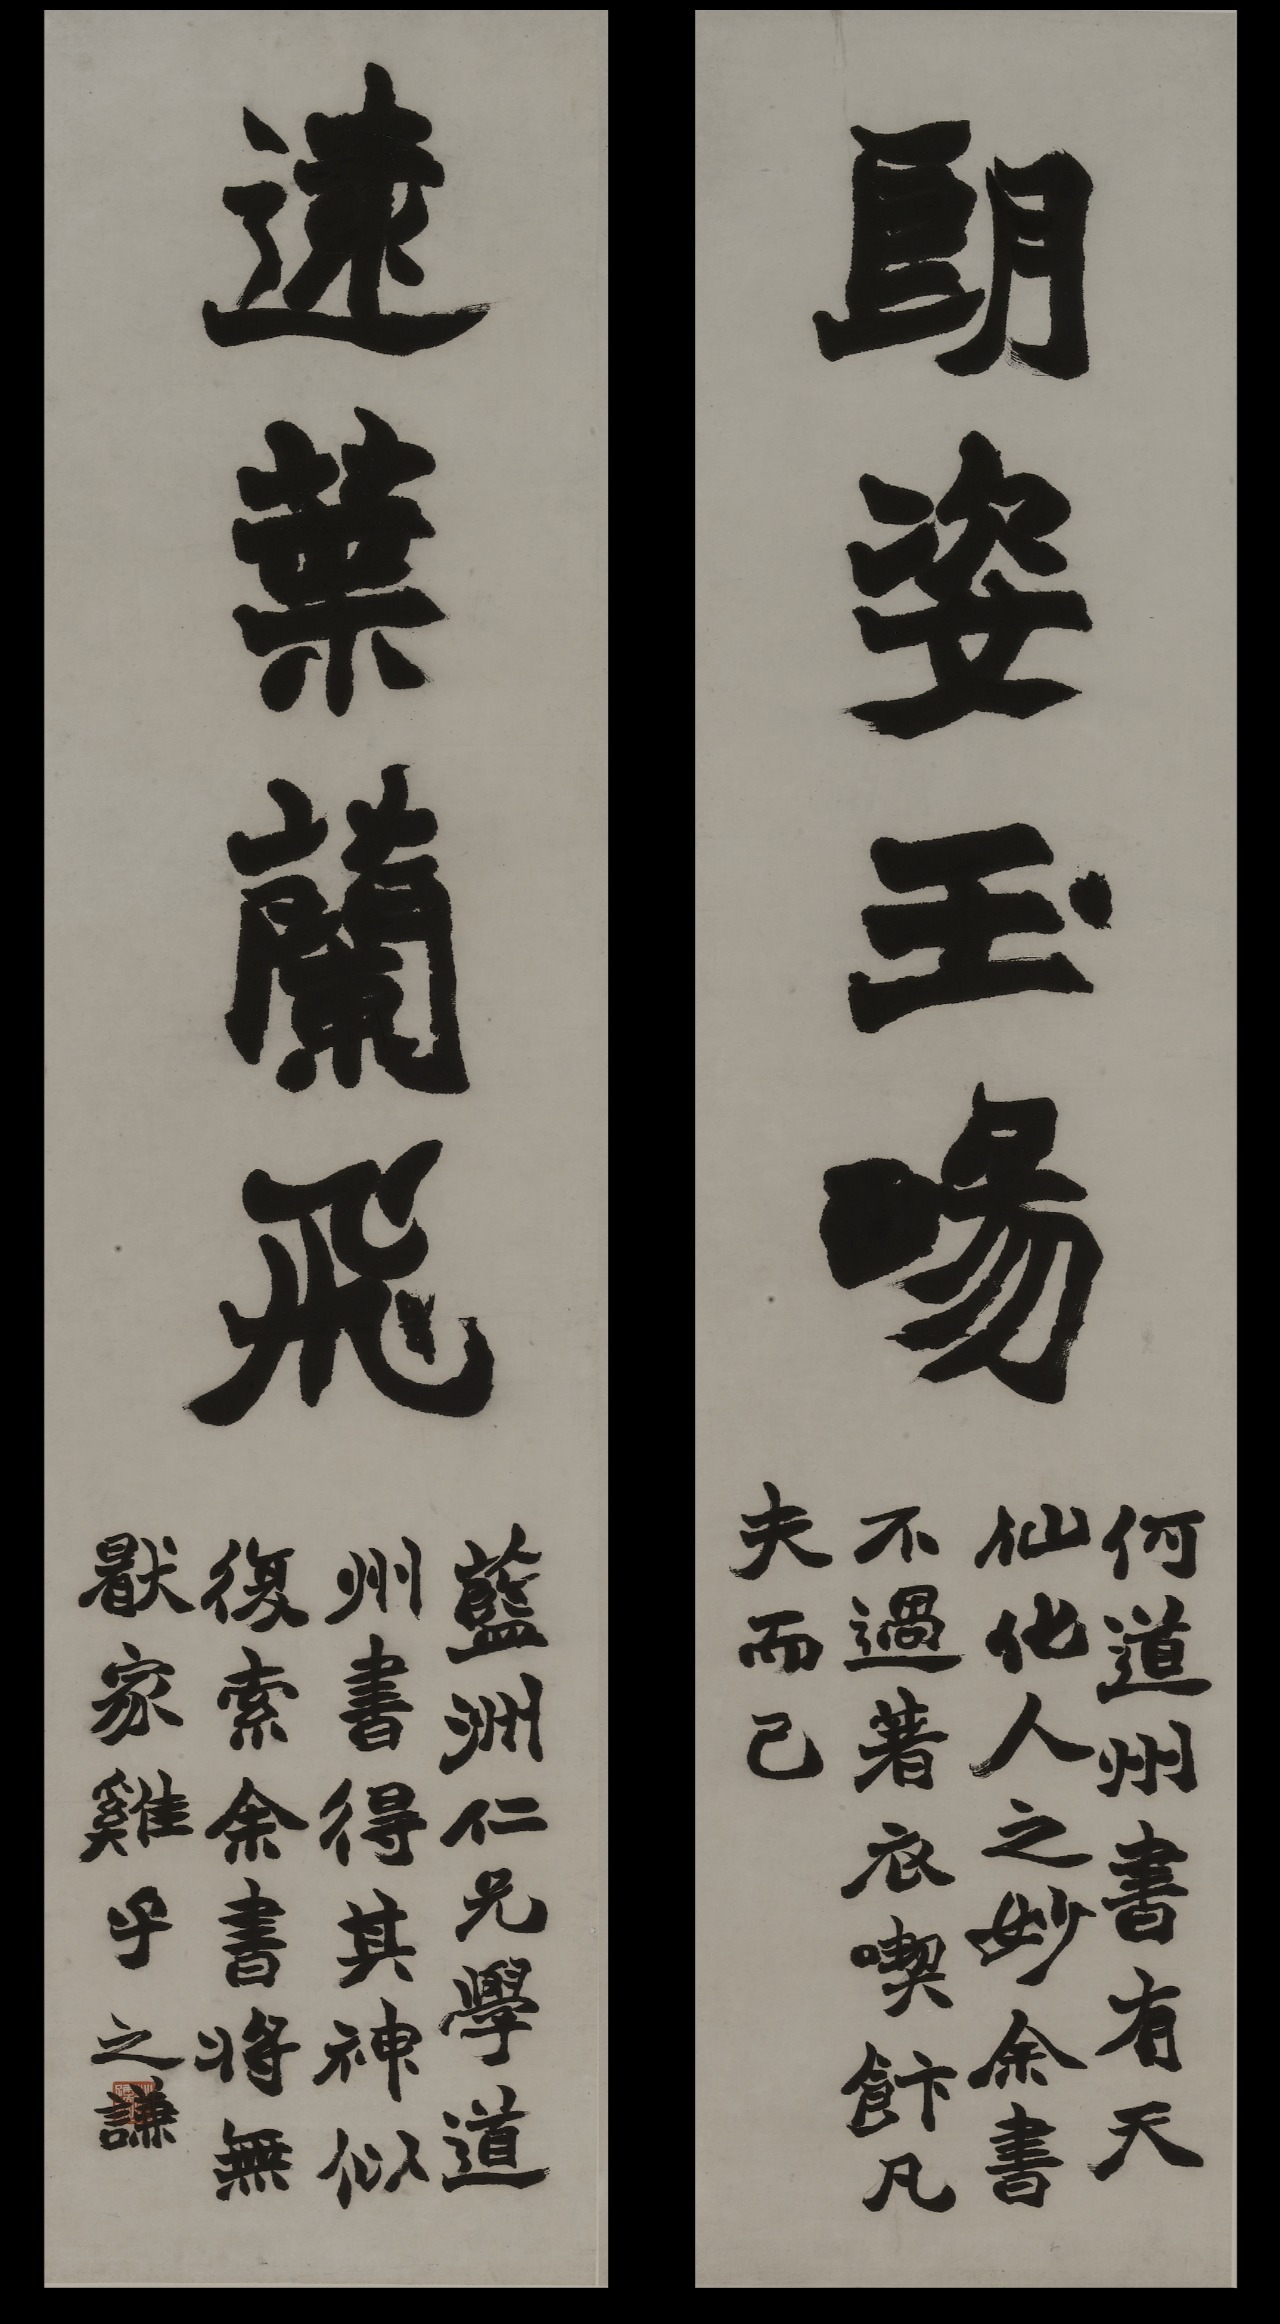 朗姿玉暢
何道州書有天
仙化人之妙余書
不過著衣喫飰凡
夫而已
遠葉蘭飛
藍洲仁兄學道
州書得其神似
復索余書將無
猒家雞乎之謙